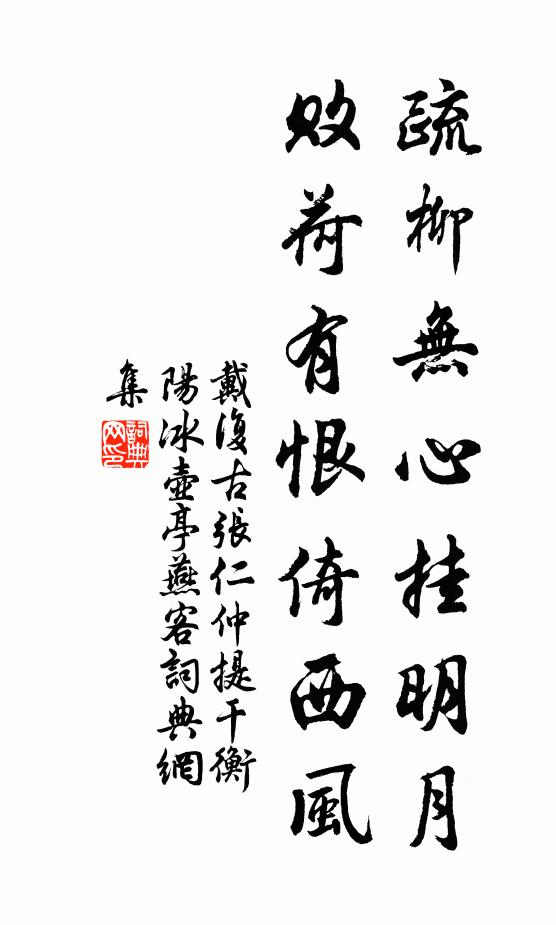 疏柳無心挂明月
敗荷有恨倚西風
戴復古張仁仲提干衡
陽冰壺亭燕客詞典網
集
詞典網印